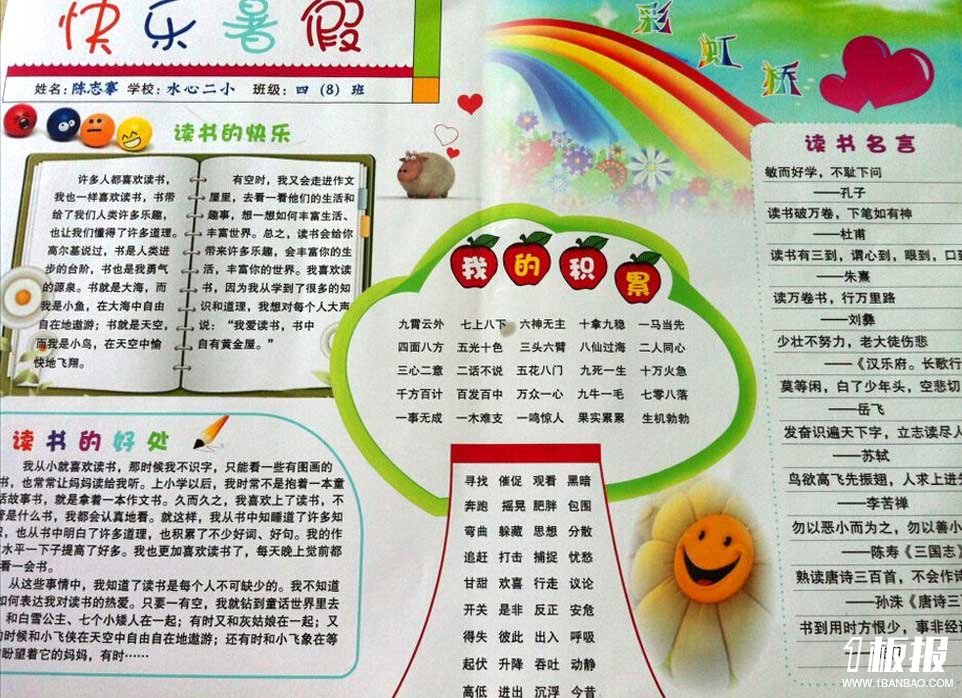 快乐暑假
姓名：陈志搴 学校：水心二小 班级：四（8）班
彩虹桥
读书的快乐
许多人都喜欢读书，
我也一样喜欢读书，书带
给了我们人类许多乐趣，
也让我们懂得了许多道理。
高尔基说过，书是人类进
步的台阶，书也是我勇气
的源泉。书就是大海，而
我是小鱼，在大海中自由
自在地遨游；书就是天空，
而我是小鸟，在天空中愉
快地飞翔。
有空时，我又会走进作文
屋里，去看一看他们的生活和
趣事，想一想如何丰富生活、
丰富世界。总之，读书会给你
带来许多乐趣，会丰富你的生
活，丰富你的世界。我喜欢读
书，因为我从学到了很多的知
识和道理，我想对每个人大声
说：“我爱读书，书中
自有黄金屋。”
读书的好处
我从小就喜欢读书，那时候我不识字，只能看一些有图画的
书，也常常让妈妈读给我听。上小学以后，我时常不是抱着一本童
话故事书，就是拿着一本作文书。久而久之，我喜欢上了读书，不
管是什么书，我都会认真地看。就这样，我从书中知睡道了许多知
识，也从书中明白了许多道理，也积累了不少好词、好句。我的作
文水平一下子提高了好多。我也更加喜欢读书了，每天晚上觉前都
看一会书。
从这些事情中，我知道了读书是每个人不可缺少的。我不知道
如何表达我对读书的热爱。只要一有空，我就钻到童话世界里去
和白雪公主、七个小矮人在一起；有时又和灰姑娘在一起；又
的时候和小飞侠在天空中自由自在地遨游；还有时和小飞象在等
盼望着它的妈妈，有时……
我的积累
九霄云外 七上八下 六神无主 十拿九稳 一马当先
四面八方 五光十色 三头六臂 八仙过海 二人同心
三心二意 二话不说 五花八门 九死一生 十万火急
千方百计 百发百中 万众一心 九牛一毛 七零八落
一事无成 一木难支 一鸣惊人 果实累累 生机勃勃
寻找 催促 观看 黑暗
奔跑 摇晃 肥胖 包围
弯曲 躲藏 思想 分散
追赶 打击 捕捉 忧愁
甘甜 欢喜 行走 议论
开关 是非 反正 安危
得失 彼此 出入 呼吸
起伏 升降 吞吐 动静
高低 进出 沉浮 今昔
读书名言
敏而好学，不耻下问
——孔子
读书破万卷，下笔如有神
——杜甫
读书有三到，谓心到，眼到，口到
——朱熹
读万卷书，行万里路
——刘彝
少壮不努力，老大徒伤悲
——《汉乐府。长歌行
莫等闲，白了少年头，空悲切
——岳飞
发奋识遍天下字，立志读尽人
——苏轼
鸟欲高飞先振翅，人求上进先
——李苦禅
勿以恶小而为之，勿以善小
——陈寿《三国志》
熟读唐诗三百首，不会作诗
——孙洙《唐诗三
书到用时方恨少，事非经过
1板报
WWW.1BANBAO.COM